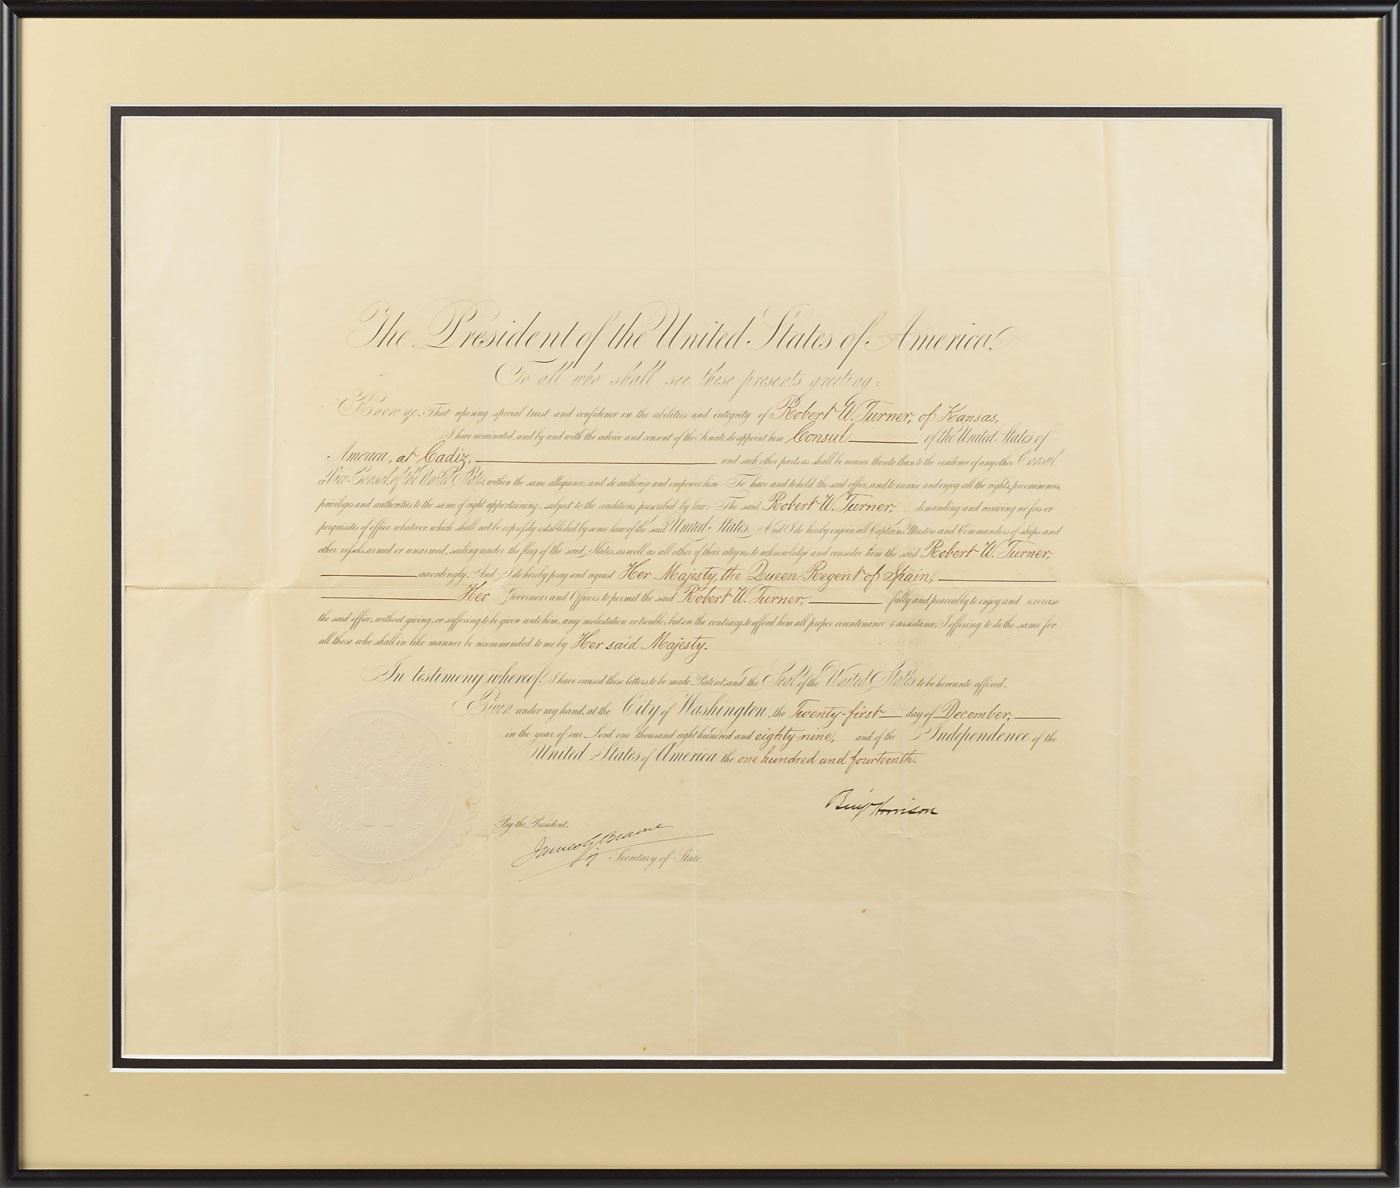 The President of the United States of America.
To all who shall see these presents greeting:
Know ye, That reposing special trust and confidence in the abilities and integrity of Robert W. Turner, of Kansas,
I have nominated, and by and with the advice and consent of the Senate, do appoint him Consul of the United States of
America, at Cadiz, and such other parts as shall be nearer thereto than to the residence of any other Consul
or Vice Consul of the United States, within the same allegiance; and do authorize and empower him To have and to hold the said office, and to exercise and enjoy all the rights, preeminences,
privileges and authorities to the same of right appertaining, subject to the conditions prescribed by law: The said Robert W. Turner, demanding and receiving no fees or
perquisites of office whatever, which shall not be expressly established by some law of the said United States. And I do hereby enjoin all Captains, Masters and Commanders of ships and
other vessels, armed or unarmed, sailing under the flag of the said States, as well as all other of their citizens to acknowledge and consider him the said Robert W. Turner,
accordingly. And I do hereby pray and request Her Majesty, the Queen Regent of Spain,
Her Governors and Officers to permit the said Robert W. Turner, fully and peaceably to enjoy and exercise
the said office, without giving, or suffering to be given unto him, any molestation or trouble; but on the contrary, to afford him all proper countenance & assistance; I offering to do the same for
all those who shall in like manner be recommended to me by Her said Majesty.
In testimony whereof, I have caused these letters to be made Patent, and the Seal of the United States to be hereunto affixed.
Given under my hand, at the City of Washington, the Twenty-first day of December,
in the year of our Lord one thousand eight hundred and eighty-nine, and of the Independence of the
United States of America the one hundred and fourteenth.
Benj Harrison
By the President,
James G Blaine
Secretary of State.